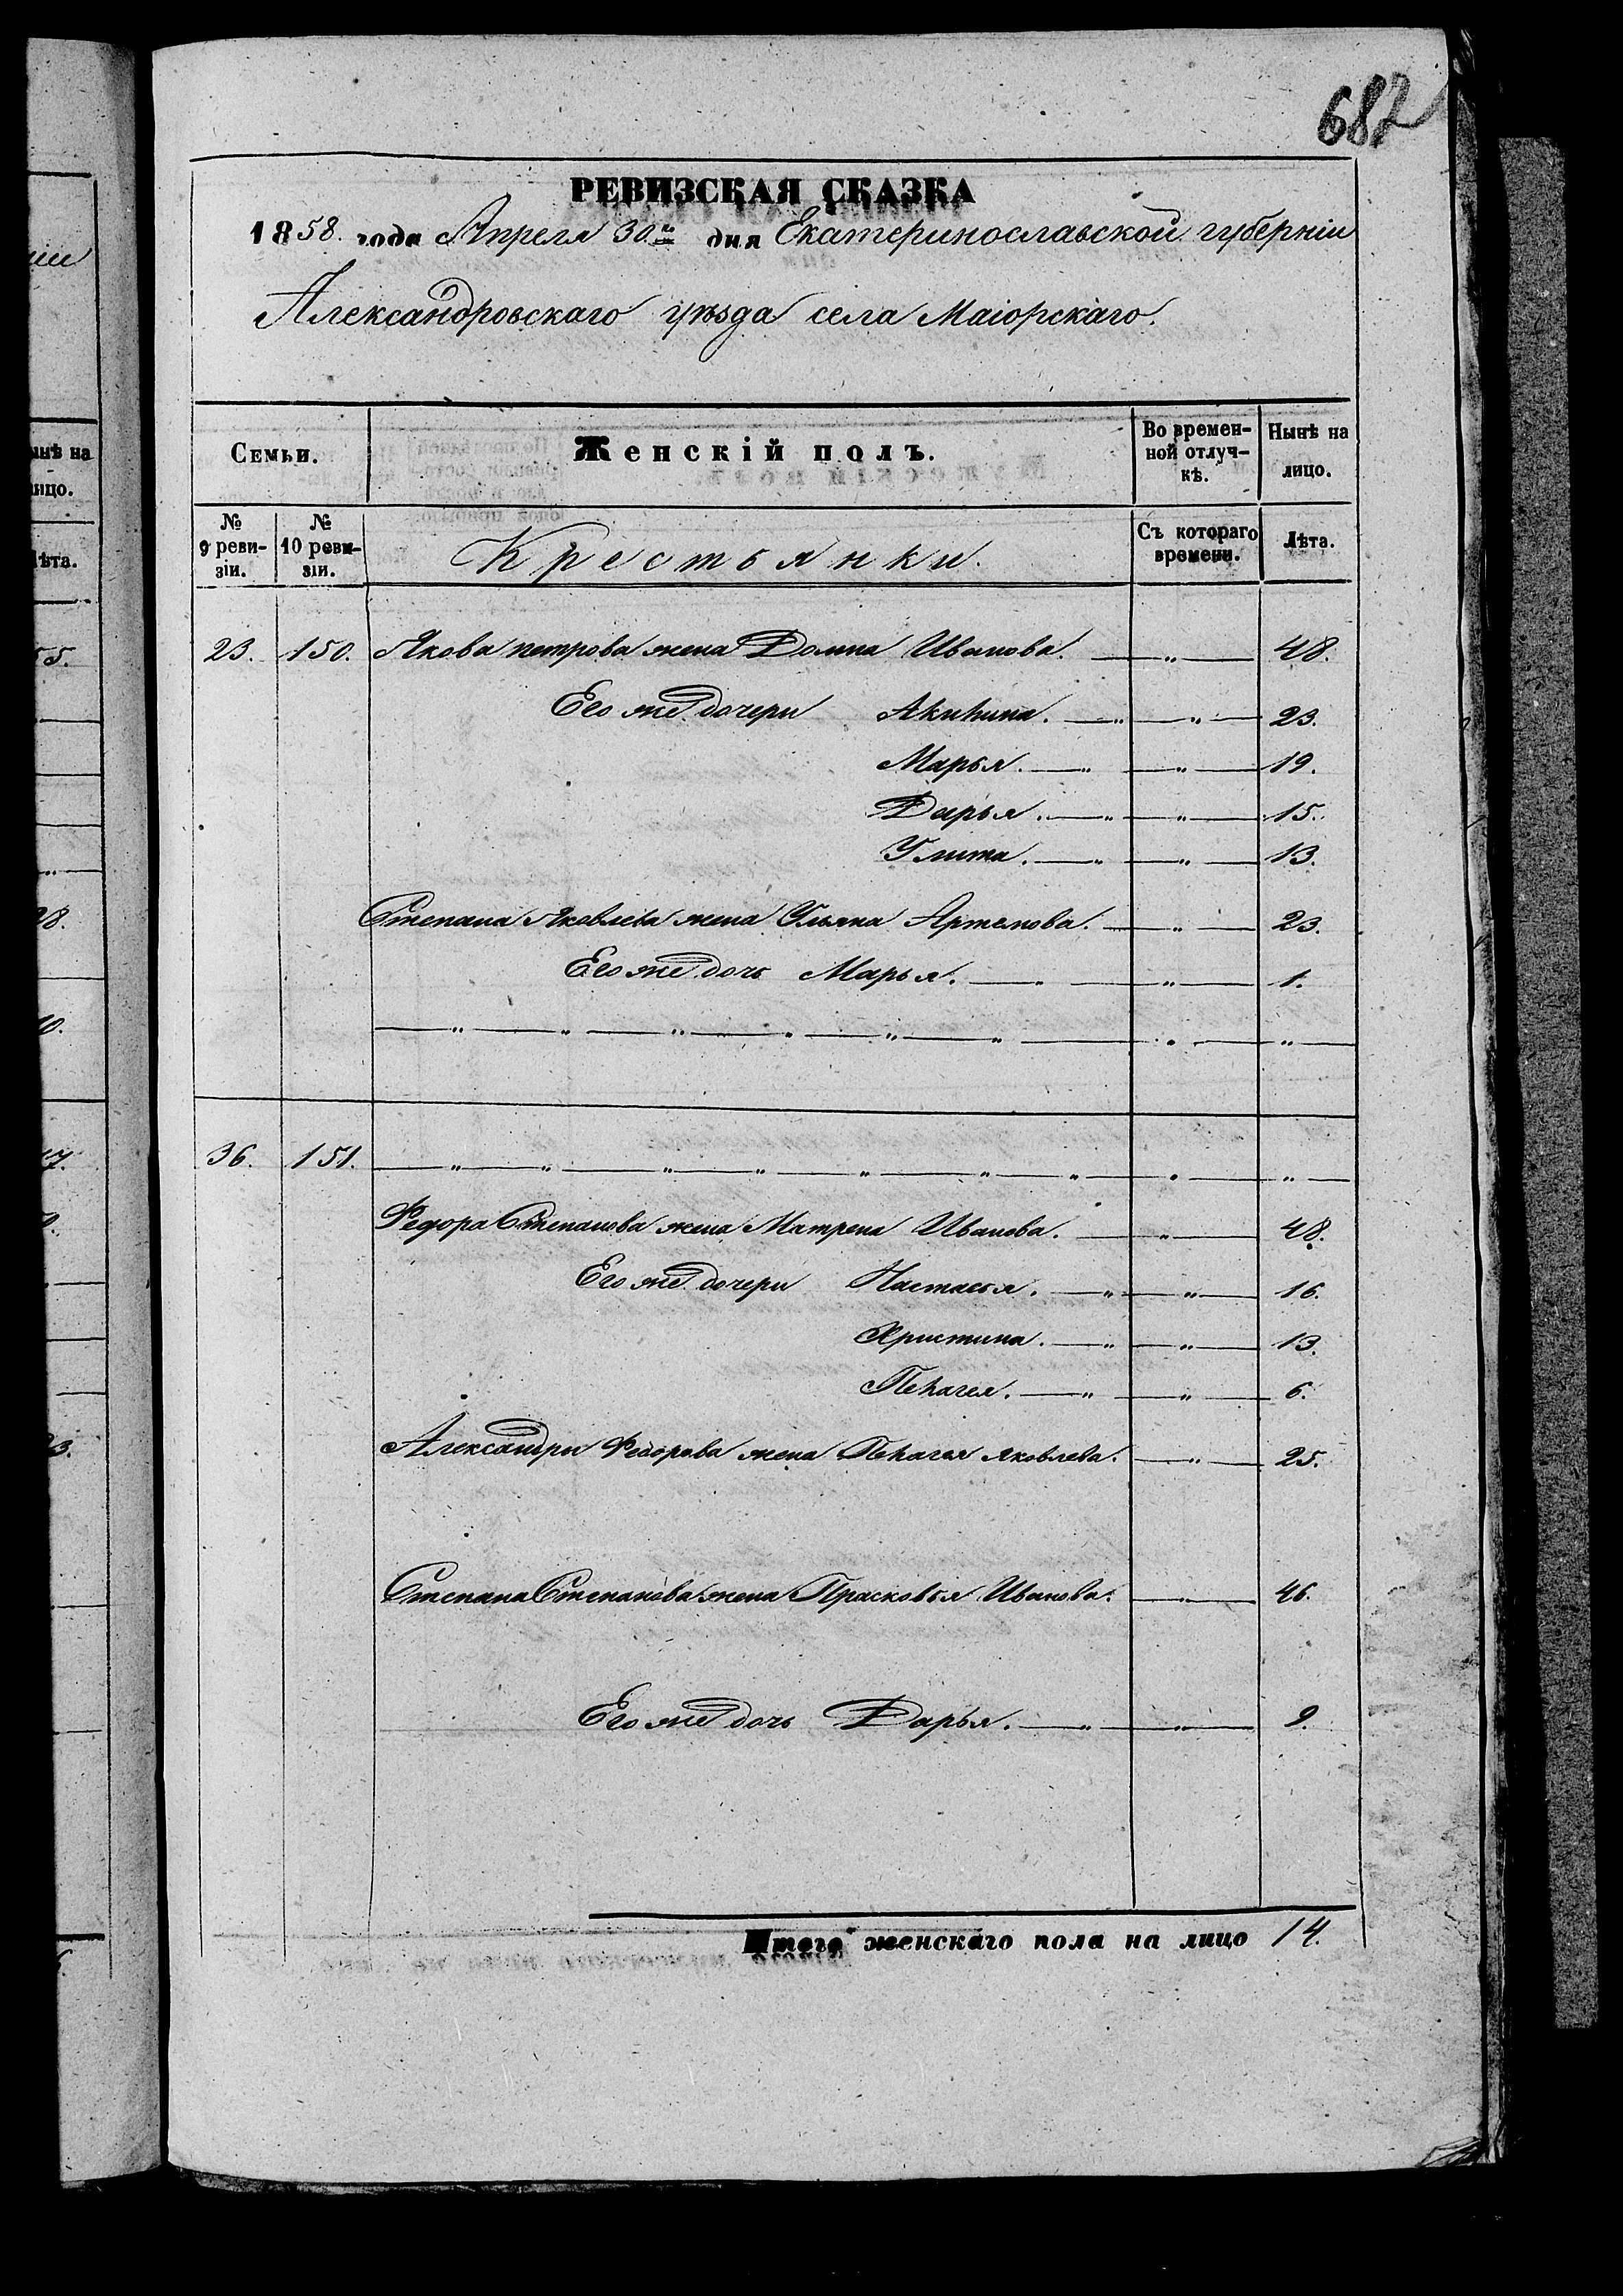 687
РЕВИЗСКАЯ СКАЗКА
1858. года Апреля 30го дня Екатеринославской губерніи
Александровскаго уѣзда села Маіорскаго.
Семьи. Женскій полъ. Во времен-ной отлуч-кѣ. Нынѣ на лицо.
№ 9 реви-зіи. № 10 реви-зіи. Крестьянки. Съ котораго времени. Лѣта.
23. 150. Якова петрова жена Домна Иванова. — „ — 48.
Его же дочери Акилина. — „ — „ — 23.
Марья. — „ — „ — 19.
Дарья. — „ — „ — 15.
Улита. — „ — „ — 13.
Степана Яковлева жена Ульяна Артемова. — „ — 23.
Его же дочь Марья. — „ — „ — 1.
— „ — „ — „ — „ — „ — „ — „ — „ —
36. 151. — „ — „ — „ — „ — „ — „ — „ — „ — „ —
Федора Степанова жена Матрена Иванова. — „ — 48.
Его же дочери Настасья. — „ — „ — 16.
Христина. — „ — „ — 13.
Пелагея. — „ — „ — 6.
Александра Федорова жена Пелагея Яковлева. — „ — 25.
Степана Степанова жена Прасковья Иванова. — „ — 46.
Его же дочь Дарья. — „ — „ — 9.
Итого женскаго пола на лицо 14.